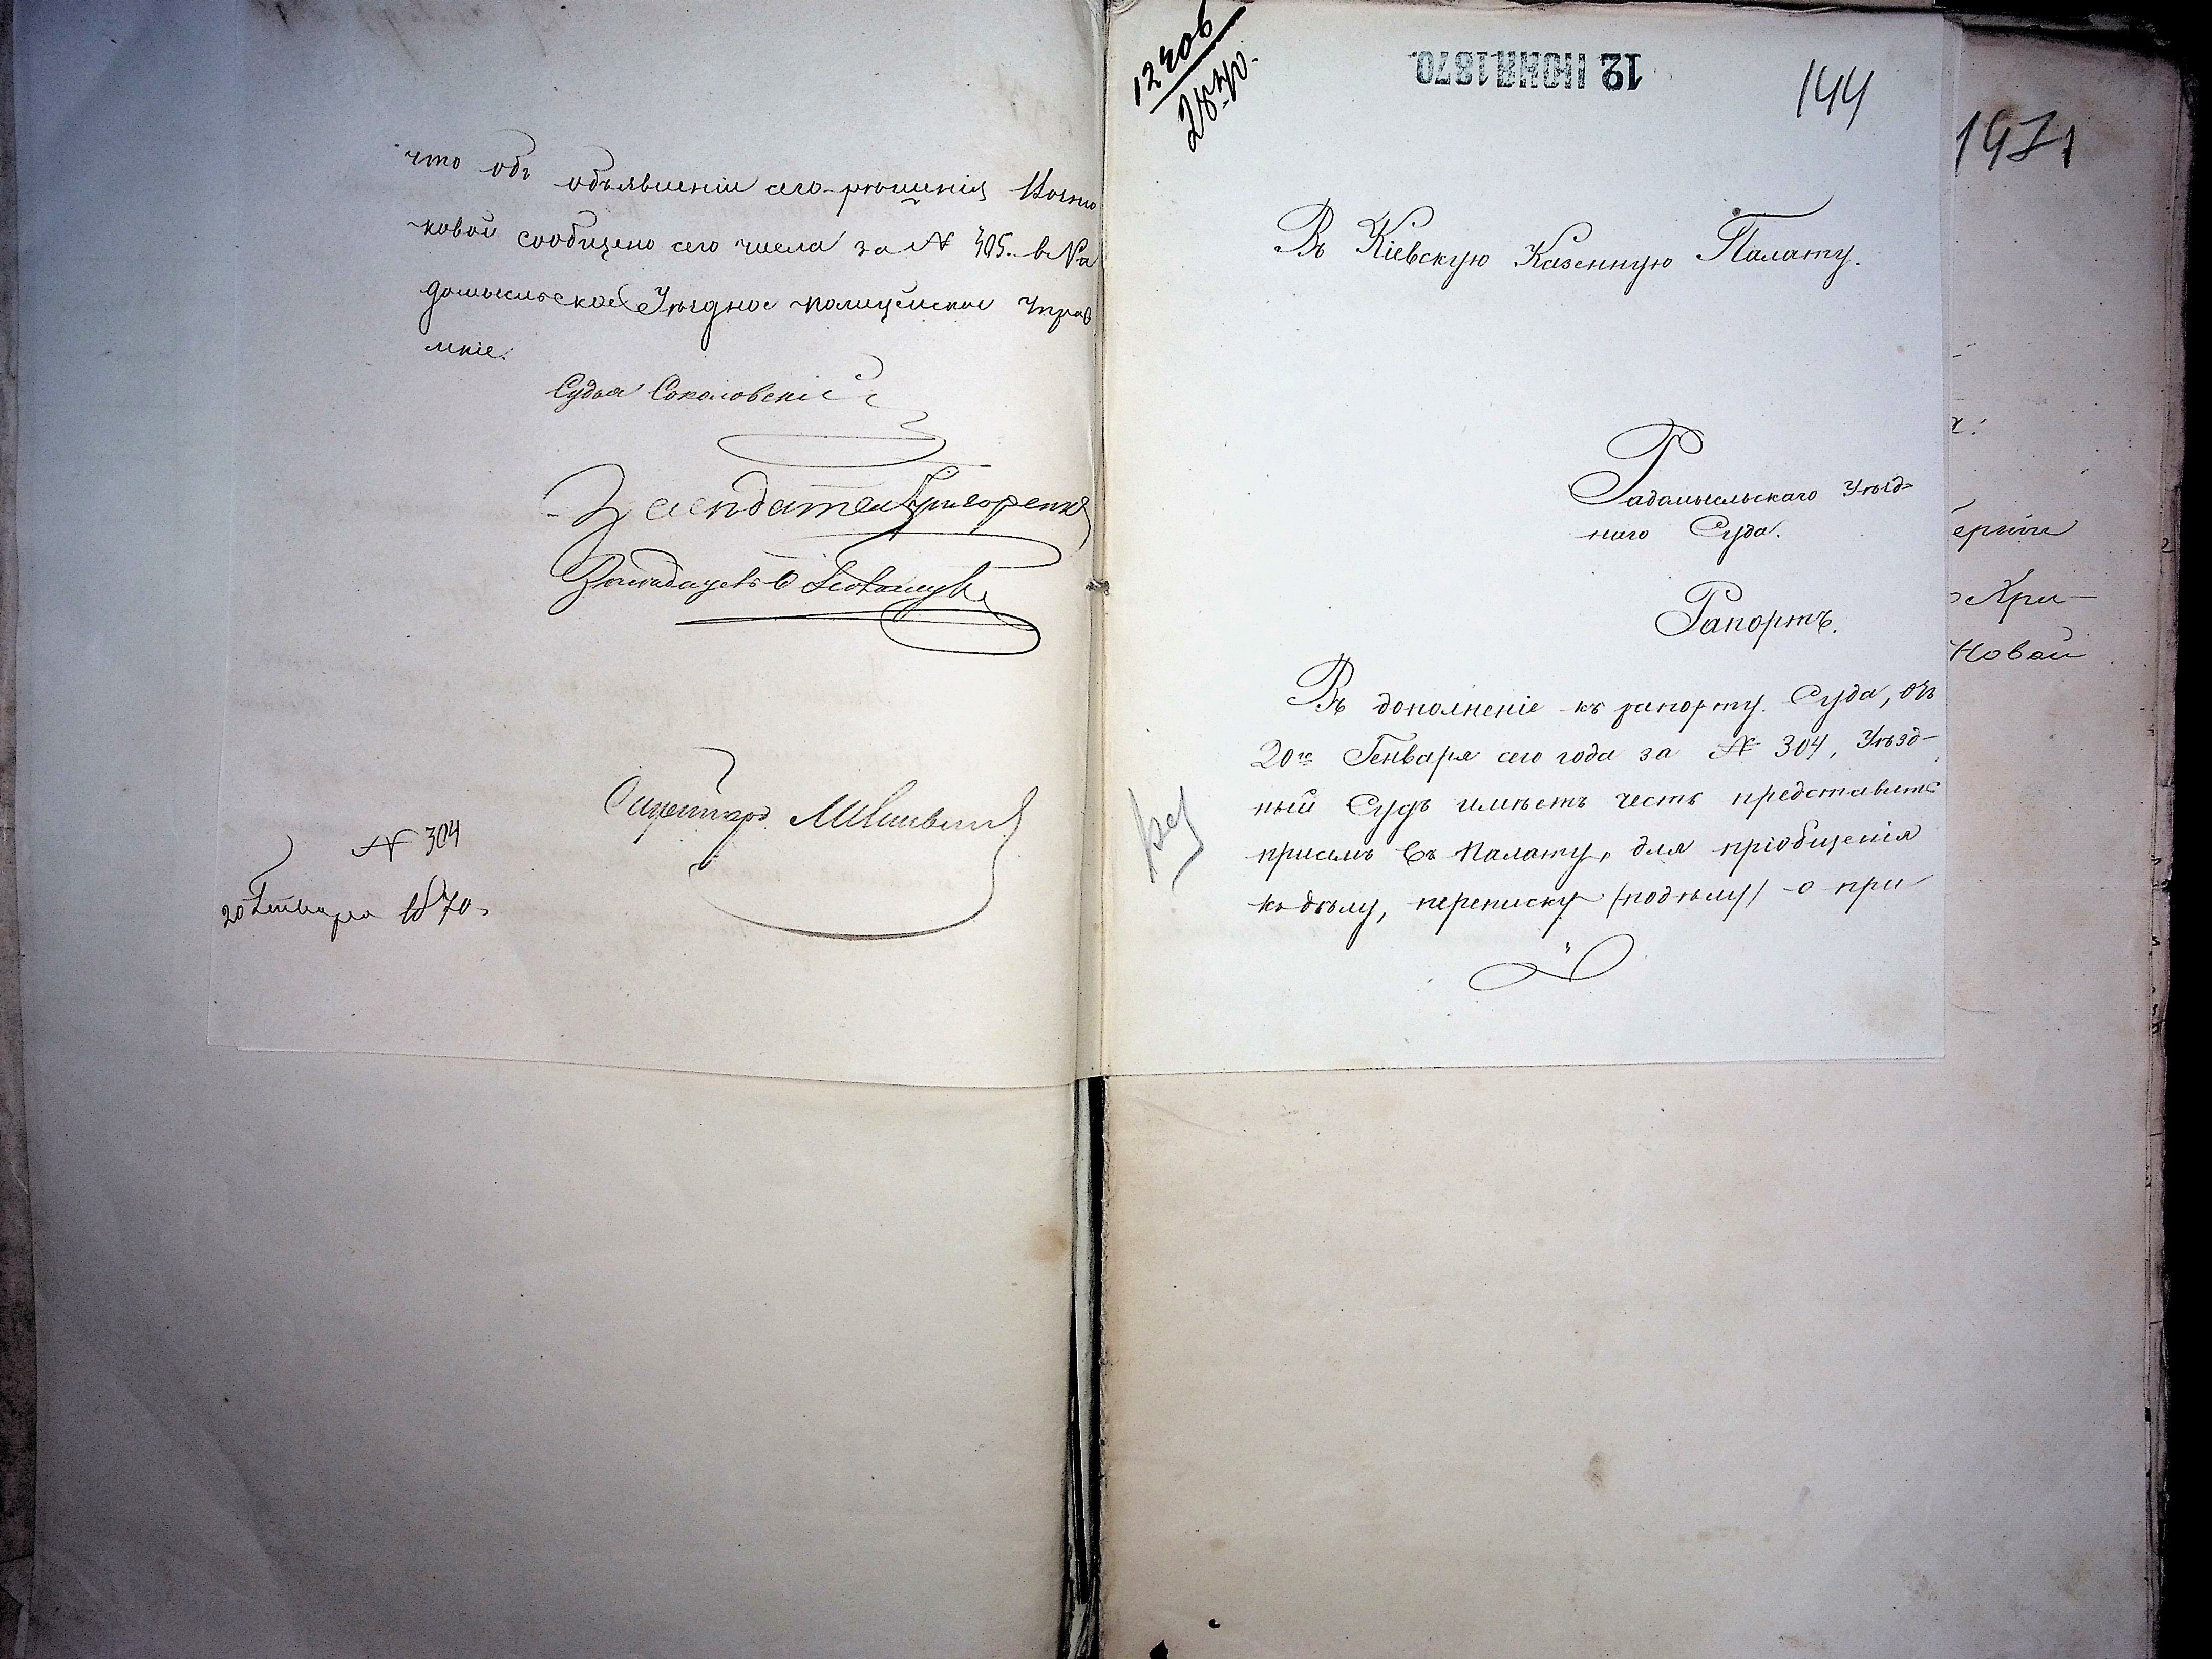 что объ объявленіи сего рѣшенія
ковой сообщено сего числа за № 305. въ Ра
домысльское Уѣздное Полицейское Управ
леніе.
Судья Соколовскій
Засѣдатель Григоренко
Засѣдатель
Секретарь
№ 304
20 Генваря 1870.
12 ІЮНЯ 1870
144
Въ Кіевскую Казенную Палату.
Радомысльскаго Уѣзд-
наго Суда.
Рапортъ.
Въ дополненіе къ рапорту Суда, отъ
20го Генваря сего года за № 304, Уѣзд-
ный Судъ имѣетъ честь представить
присемъ въ Палату, для пріобщенія
къ дѣлу, переписку (подѣлу) о при
1471
ерніи
Хри-
Новой